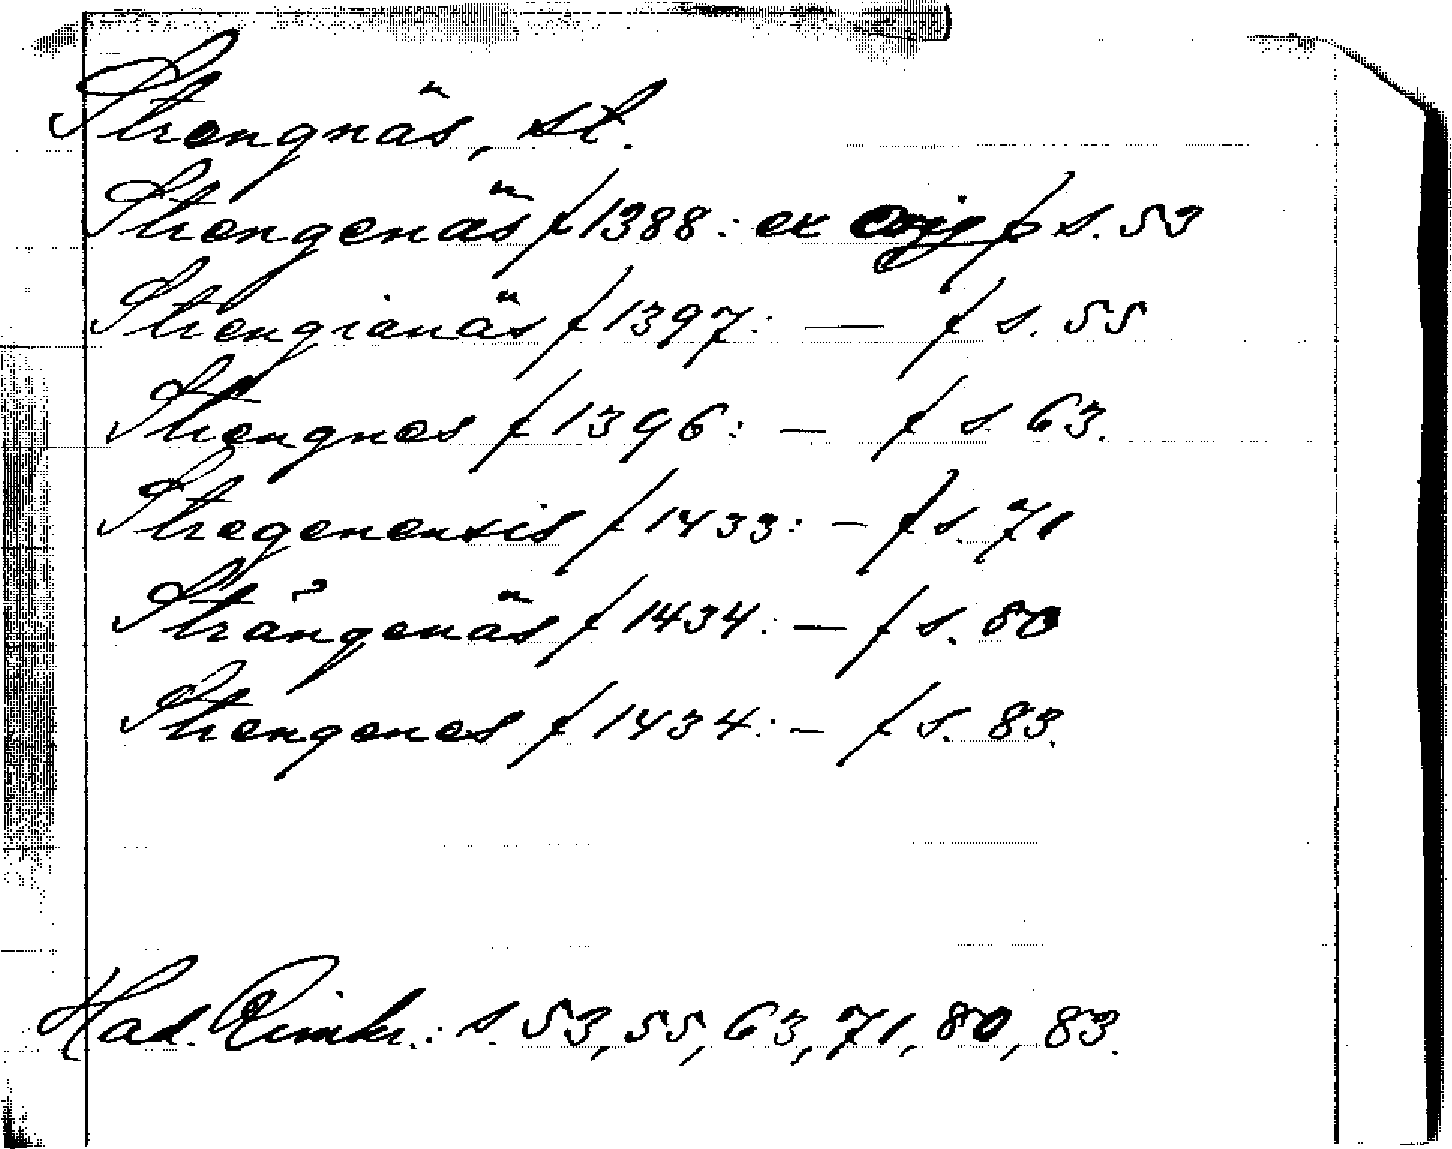 Strengnäs, st.
Strengenäs f 1388: ex orig f s. 53
Strengianäs f 1397: — f s. 55
Strengnes f 1396: — f s. 63.
Stregenensis f 1433: — f s. 71
Strängenäs f 1434: — f s. 80
Strengenes f 1434: — f s. 83.
Had. Rimkr.: s. 53, 55, 63, 71, 80, 83.